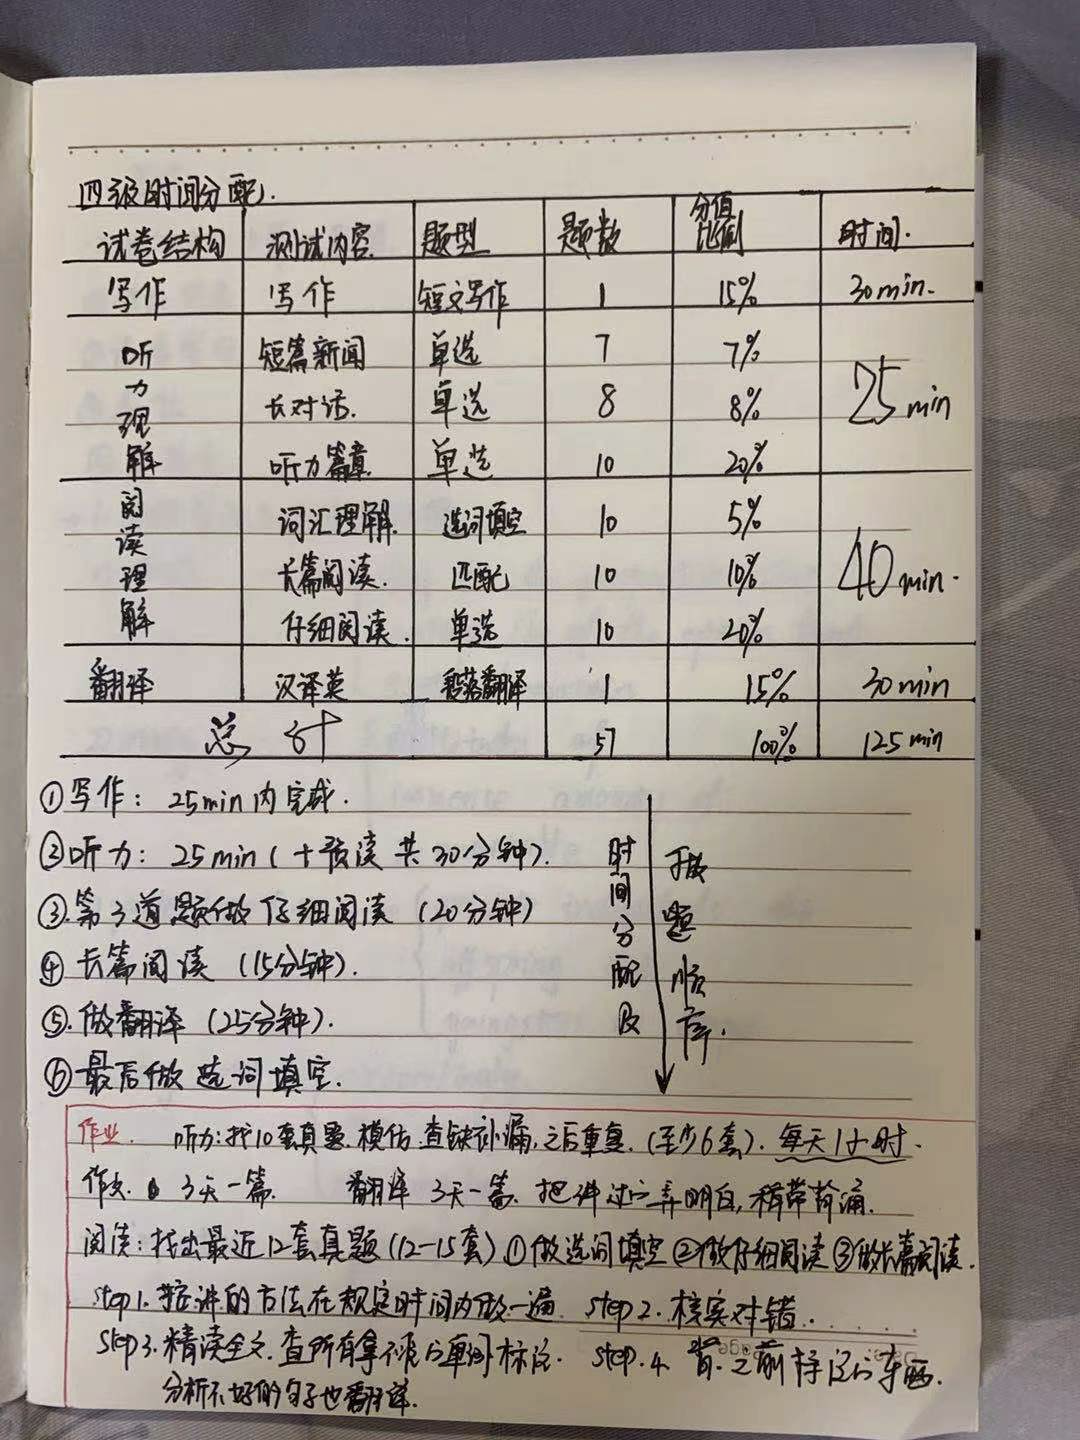 四级时间分配.
试卷结构 测试内容 题型 题数 分值比例 时间.
写作 写作 短文写作 1 15% 30min.
听力理解 短篇新闻 单选 7 7% 25min
长对话. 单选 8 8%
听力篇章 单选 10 20%
阅读理解 词汇理解. 选词填空 10 5% 40min.
长篇阅读. 匹配 10 10%
仔细阅读. 单选 10 20%
翻译 汉译英 段落翻译 1 15% 30min
总计 57 100% 125min
①写作: 25min内完成.
②听力: 25min(十预读共30分钟).
③.第3道题做仔细阅读(20分钟)
④长篇阅读(15分钟).
⑤.做翻译(25分钟).
⑥最后做选词填空.
时间分配及
做题顺序.
作业. 听力:找10套真题.模仿.查缺补漏,之后重复.(至少6套).每天1小时.
作文. 3天一篇. 翻译 3天一篇.把讲过的弄明白,稍带背诵.
阅读:找出最近12套真题(12-15套)①做选词填空②做仔细阅读③做长篇阅读.
Step1.按讲的方法在规定时间内做一遍. Step2.核实对错.
Step3.精读全文.查所有拿不准的单词标注. Step.4.背.之前标注的东西.
分析不好的句子也翻译.